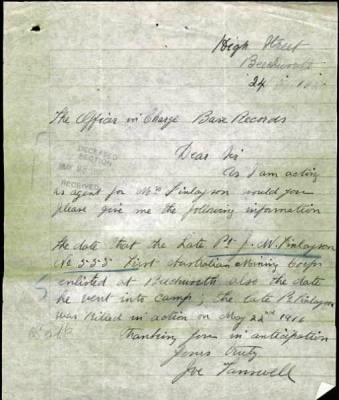 High Street
Beechworth
24
The Officer in Charge Base Records
Dear Sir
As I am acting
as agent for Mrs Finlayson would you
please give me the following information
the date that the Late Pt J. W. Finlayson
No 555 First Australian Mining Corps
enlisted at Beechworth also the date
he went into camp, the late Pt Finlayson
was Killed in action on May 22nd 1916
Thanking you in anticipation
Yours Truly
Joe Tanswell
DECEASED
SECTION
RECEIVED